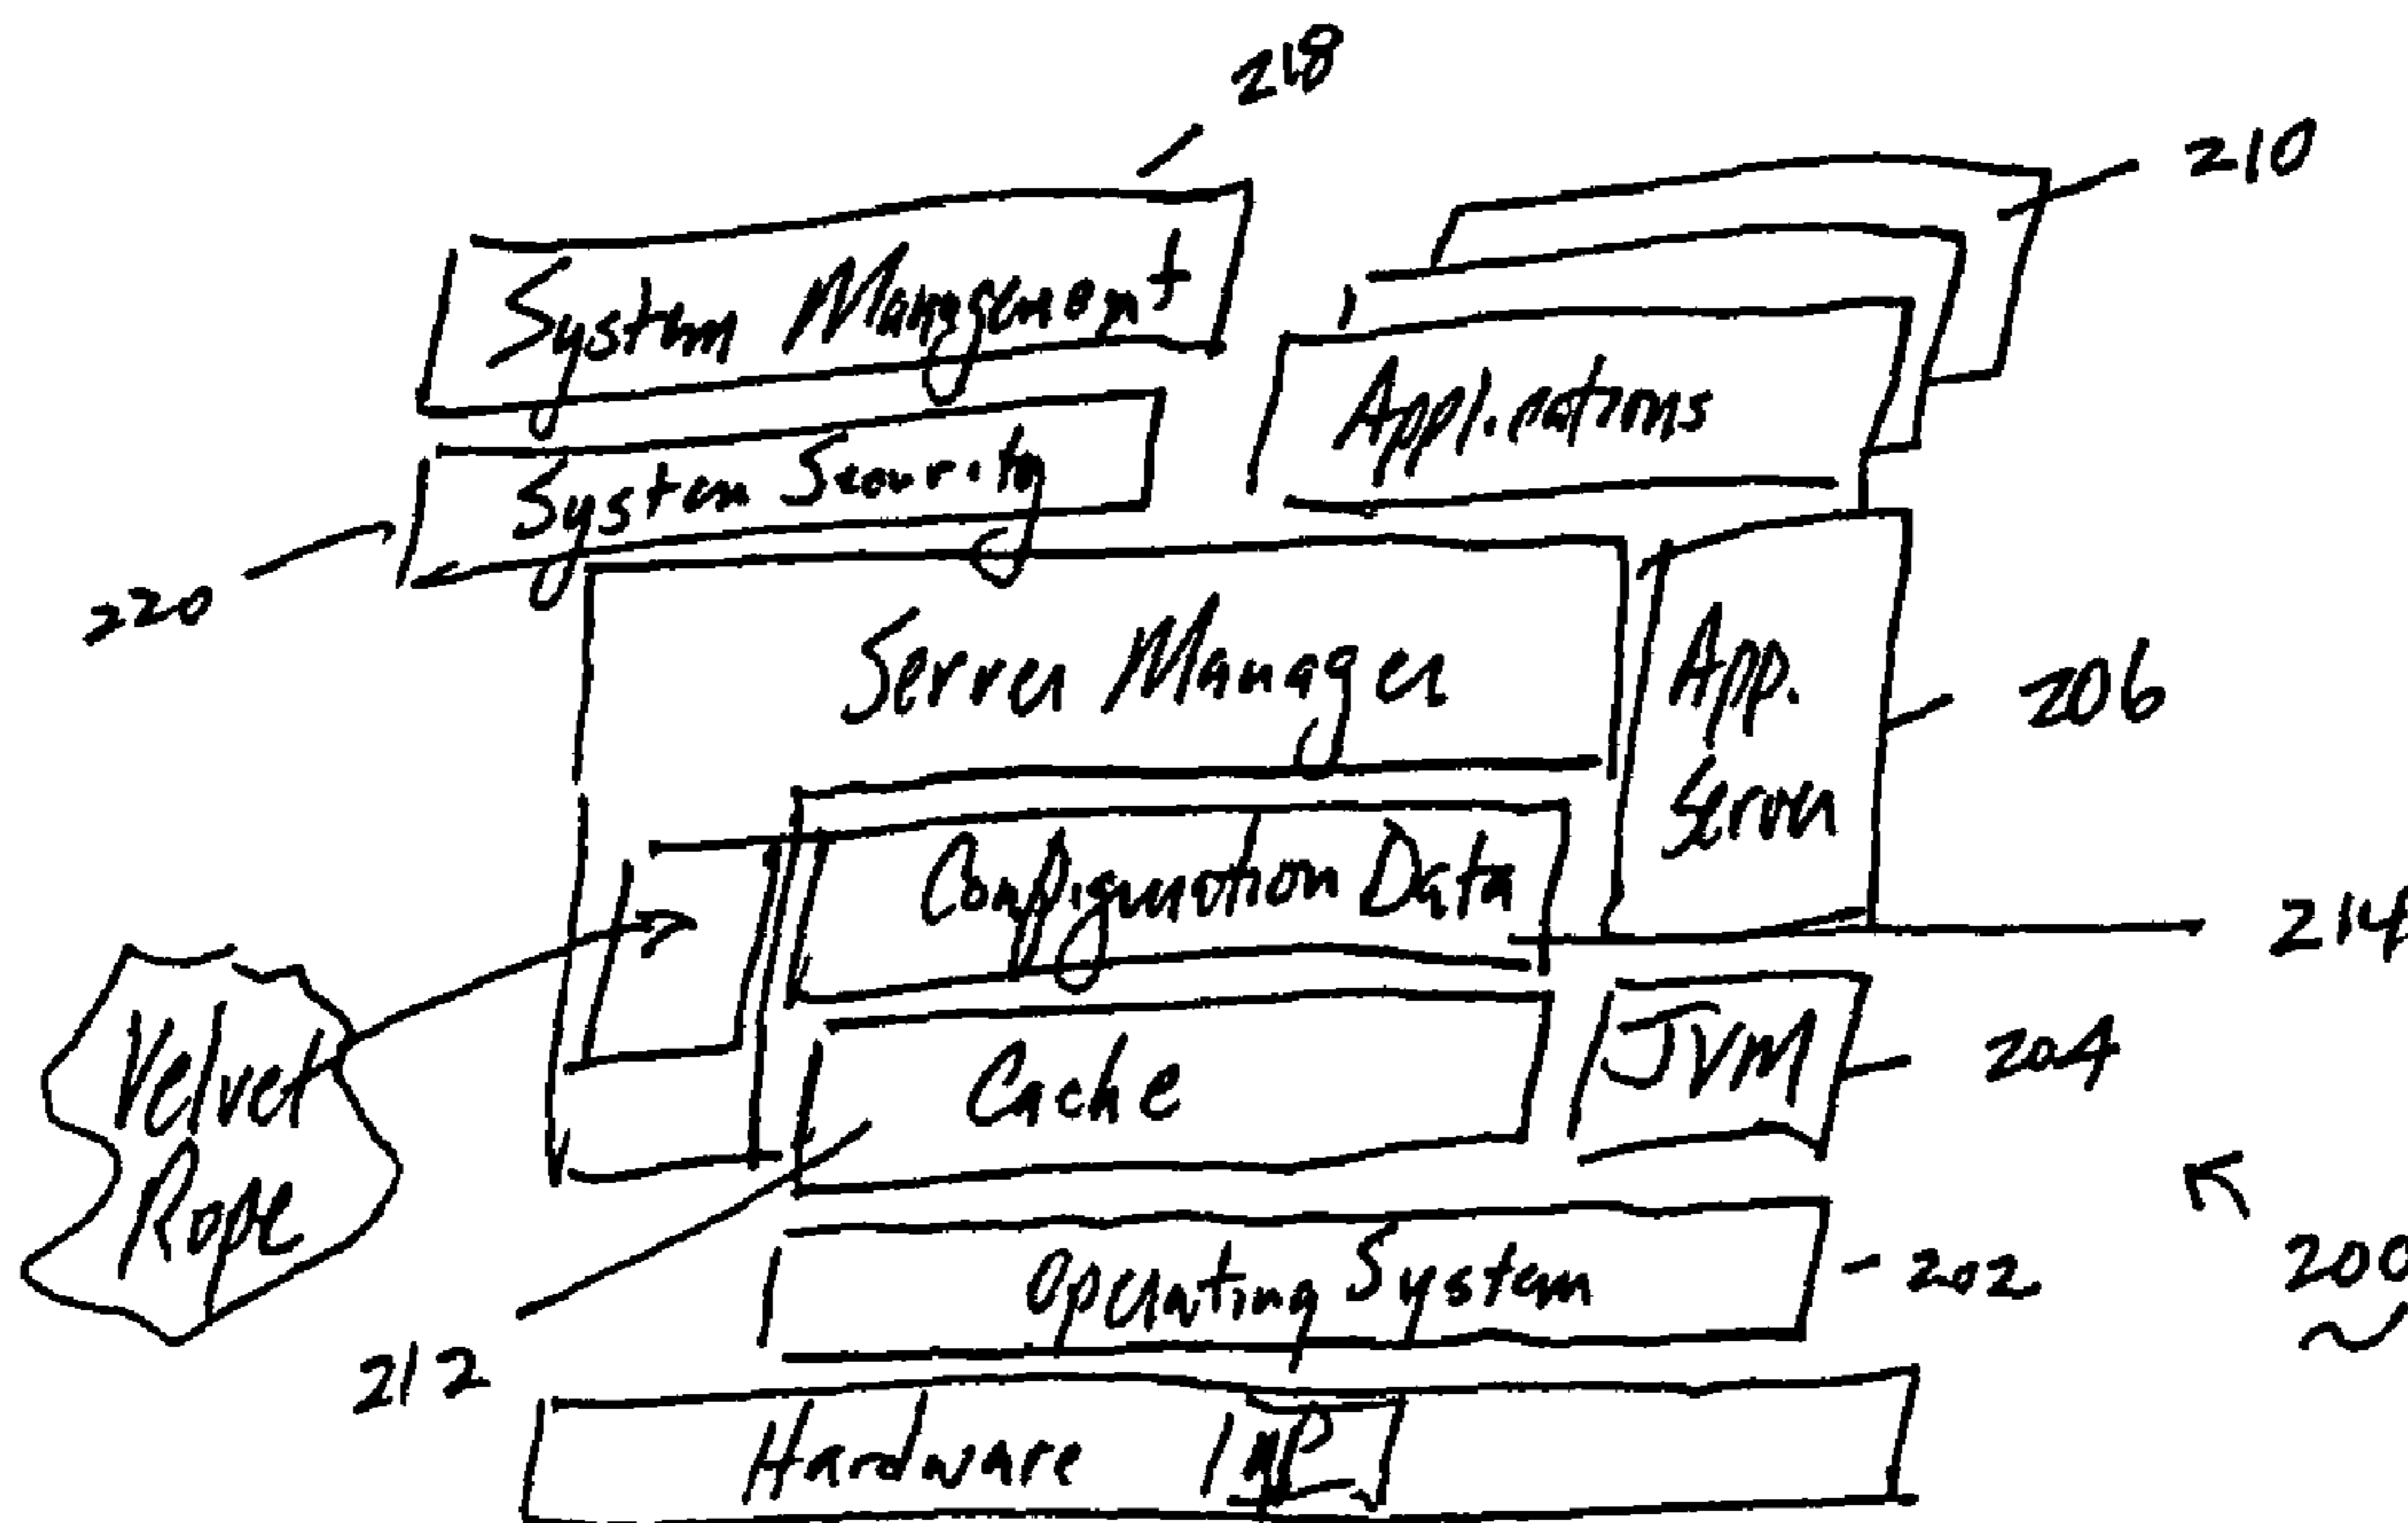 218
210
System Management
Applications
System Security
220
Server Manager
App.
Server
206
Configuration Data
214
Velvet
Rope
Cache
JVM
204
Operating System
202
200
212
Hardware